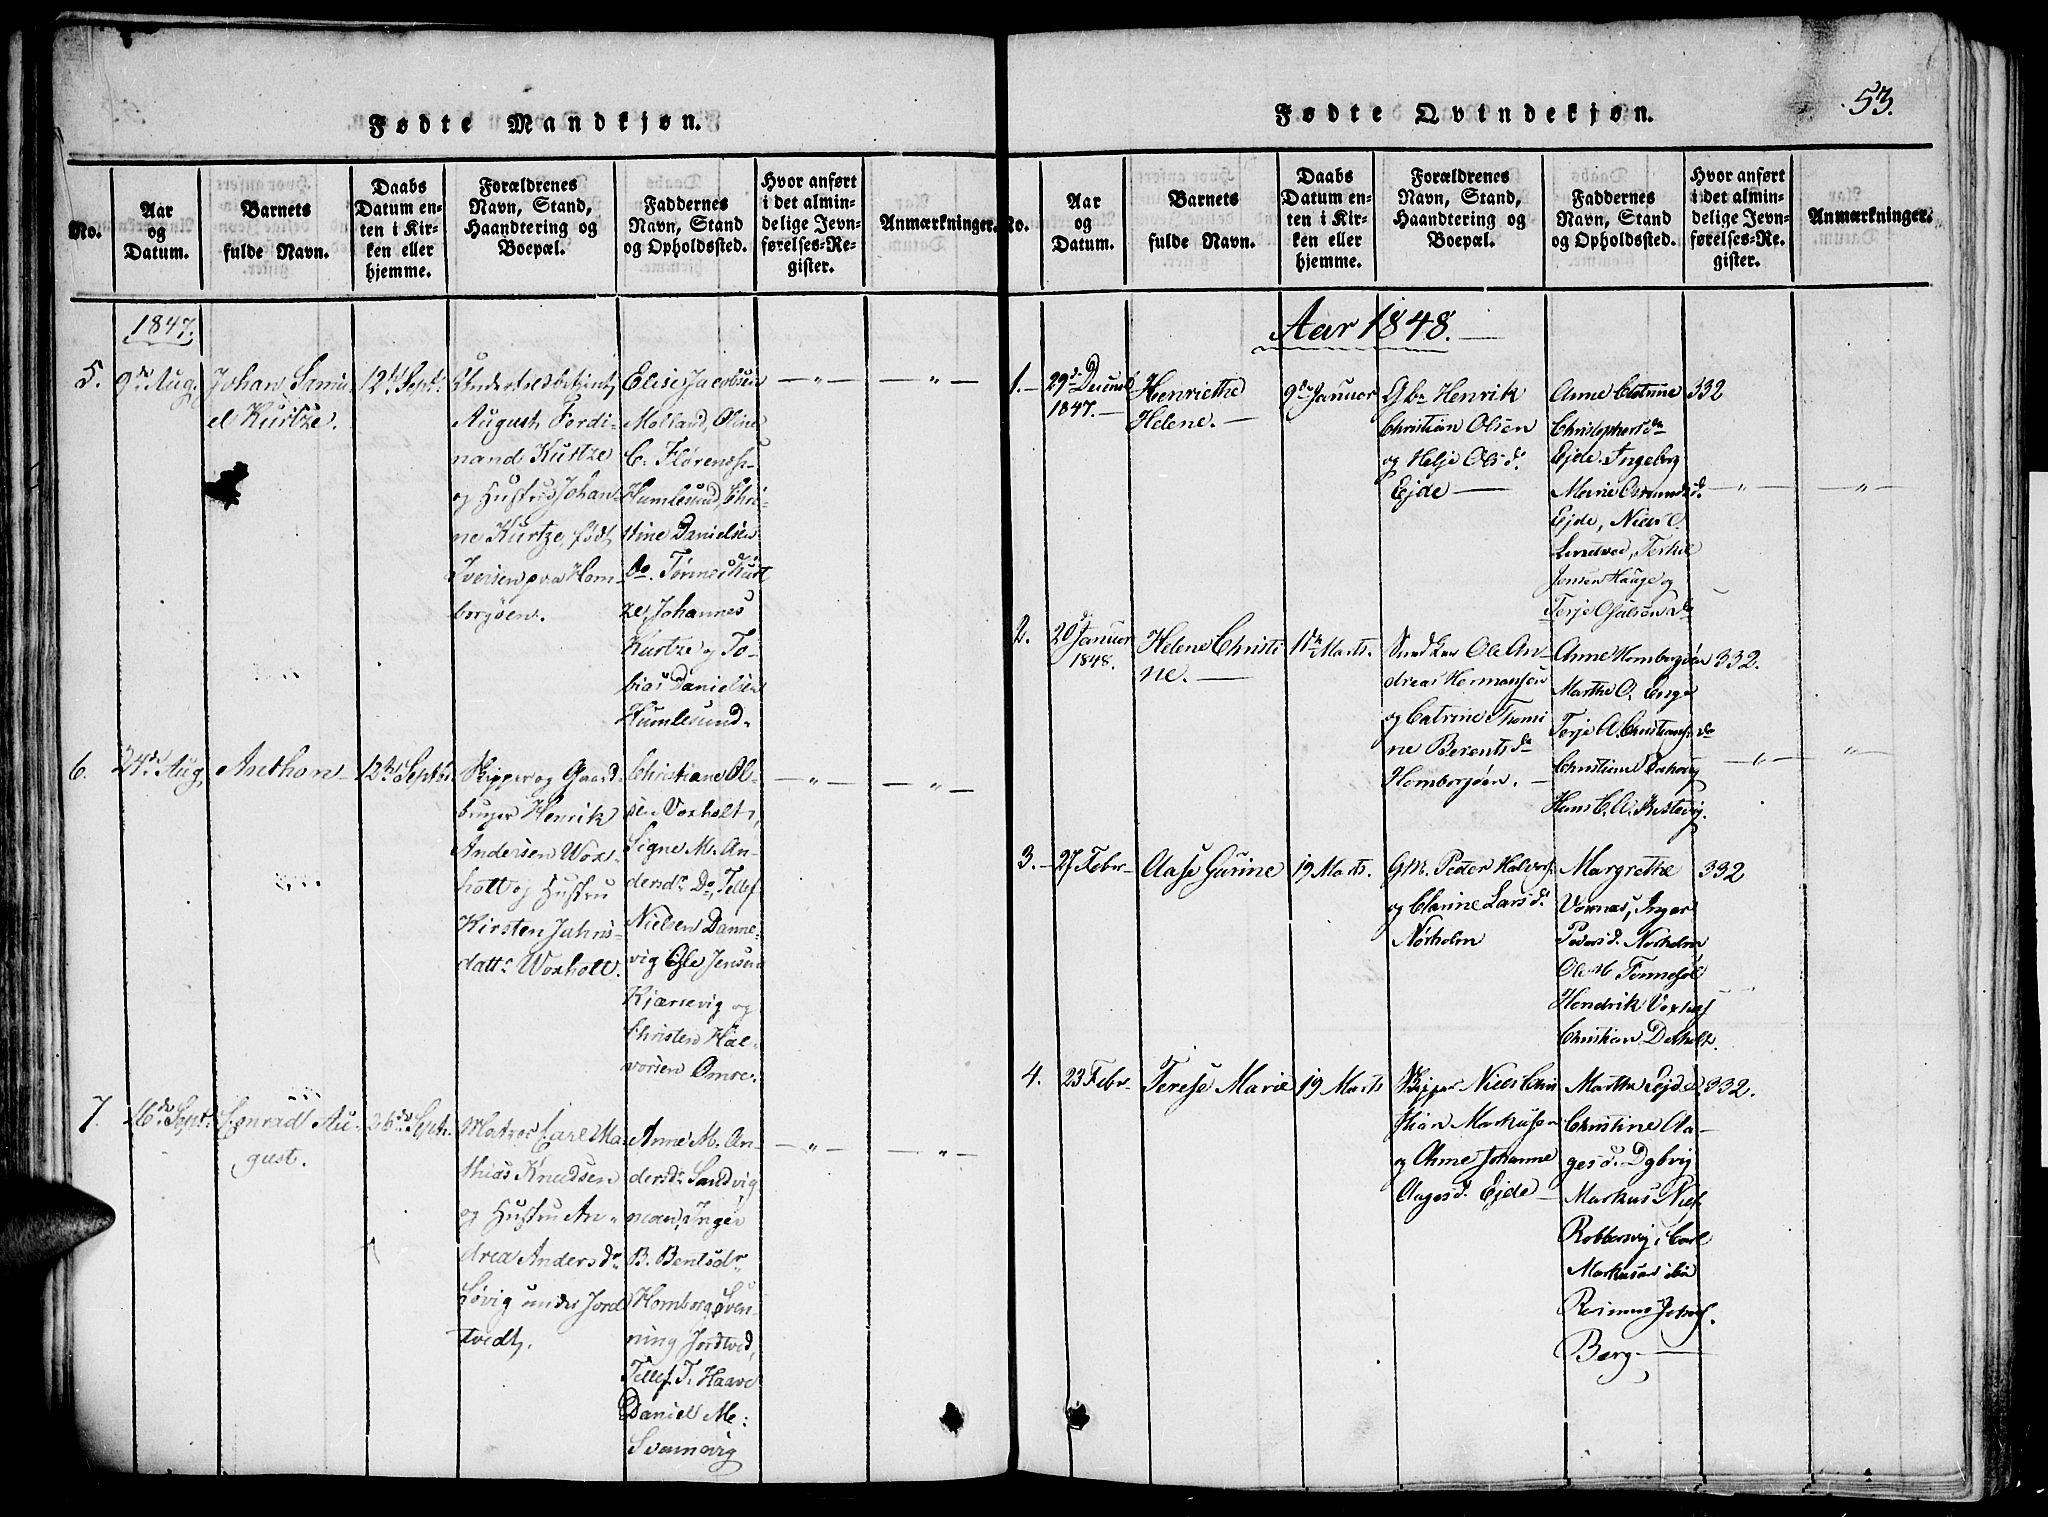 53.
Fødte Mandkjøn.
No.
Aar
og
Datum.
Barnets
fulde Navn.
Daabs
Datum en-
ten i Kir-
ken eller
hjemme.
Forældrenes
Navn, Stand,
Haandtering og
Boepæl.
Faddernes
Navn, Stand
og Opholdssted.
Hvor anført
i det almin-
delige Jevn-
førelses-Re-
gister.
Anmærkninger.
1847.
5.
9de Aug.
Johan Samu
el Kurtze.
12te Septr.
August Ferdi-
nand Kurtze
og Hustru Johan-
ne Kurtze, født
Iversen paa Hom-
borgøen.
Elise Jacobsen
Molland, Oline
C. Florenss.
Humlesund, Chri-
stine Danielsen
do. Tønnes Kurt
ze, Johannes
Kurtze og To-
bias Danielsen
Humlesund-
— „ —
— „ —
6.
24de Aug.
Anthon
12te Septbr.
Skipper og Gaard
bruger Henrik
Andersen Wox-
holt og Hustru
Kirsten Jahns-
dattr Woxholt.
Christiane Ol-
sen Voxholt,
Signe M. An-
dersdr. Do, Tellef
Nielsen Danne-
vig Ole Jensen
Kjærsevig og
Christen Hal-
vorsen Omre.
— „ —
— „ —
7.
16de Septr.
Conrad Au-
gust.
26de Septr.
Matros Carl Ma
thias Knudsen
og Hustru An-
drea Andersdr
Løvig under Jord
tvedt.
Anne M. An-
dersdr. Sandvig
neder, Inger
B. Bentsdr
Homborg, Sven-
ning Jordtved,
Tellef T. Haave
Daniel M:
Svennevig
— „ —
— „ —
Fødte Qvindekjøn.
No.
Aar
og
Datum.
Barnets
fulde Navn.
Daabs
Datum en-
ten i Kir-
ken eller
hjemme.
Forældrenes
Navn, Stand,
Haandtering og
Boepæl.
Faddernes
Navn, Stand
og Opholdssted.
Hvor anført
i det almin-
delige Jevn-
førelses-Re-
gister.
Anmærkninger.
Aar 1848.
1.
29de Decemb
1847.
Henriethe
Helene.
9de Januar
Gbr Henrik
Christian Olsen
og Helje Olsd.
Ejde
Anne
Christophersdr
Ejde. Ingeborg
Marie Osmundsd.
Ejde, Niels O.
Terkel
Jensen Hauge og
Terje do
332
— „ —
— „ —
2.
20de Januar
1848.
Helene Christi
ne.
11te Marts.
Ole An-
dreas Hermansen
og Catrine Thomi
ne Berentsdr
Homborgøen.
Anne Homborgøen
Marthe O. Enge
Terje A. Christians. do
Christiane
Hans C. A.
332.
— „ —
— „ —
3.
27 Febr
Aase Gurine
19 Marts.
GM. Peder Halvors.
og Clarine Larsd.
Nørholm
Margrethe
Voxnes, Inger
Pedersd. Nørholm
Ole M. Tønnesøl
Hendrik
Christian
332
4.
23 Febr
Terese Marie
19 Marts
Skipper Niels Chri
stian Markusen
og Anne Johanne
Aagesd. Ejde
Marthe Ejde
Christine Aa-
gesd. Dybvig
Markus Niels.
Robbersvig, Carl
Markusen ibid
Rasmus Jetmf.
Berg
332.